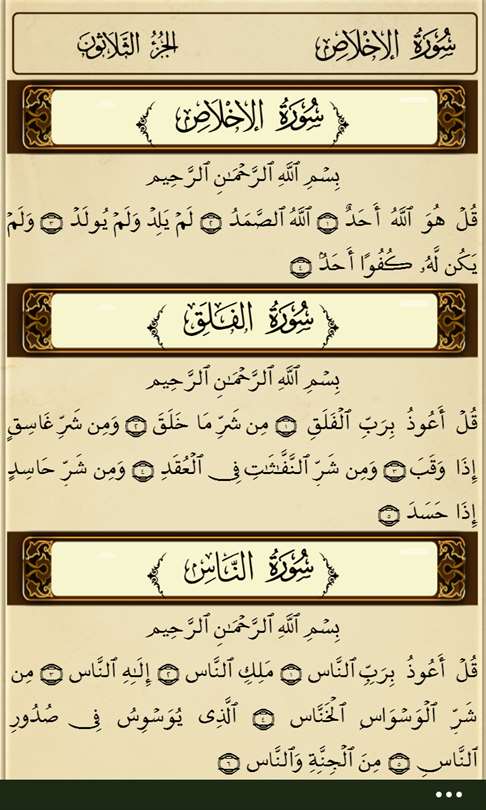 سُورَةُ الإِخْلَاصِ الجُزءُ الثَّلَاثُونَ
سُورَةُ الإِخْلَاصِ
بِسْمِ ٱللَّهِ ٱلرَّحْمَـٰنِ ٱلرَّحِيمِ
قُلْ هُوَ ٱللَّهُ أَحَدٌ ١ ٱللَّهُ ٱلصَّمَدُ ٢ لَمْ يَلِدْ وَلَمْ يُولَدْ ٣ وَلَمْ
يَكُن لَّهُۥ كُفُوًا أَحَدٌۢ ٤
سُورَةُ الفَلَقِ
بِسْمِ ٱللَّهِ ٱلرَّحْمَـٰنِ ٱلرَّحِيمِ
قُلْ أَعُوذُ بِرَبِّ ٱلْفَلَقِ ١ مِن شَرِّ مَا خَلَقَ ٢ وَمِن شَرِّ غَاسِقٍ
إِذَا وَقَبَ ٣ وَمِن شَرِّ ٱلنَّفَّـٰثَـٰتِ فِى ٱلْعُقَدِ ٤ وَمِن شَرِّ حَاسِدٍ
إِذَا حَسَدَ ٥
سُورَةُ النَّاسِ
بِسْمِ ٱللَّهِ ٱلرَّحْمَـٰنِ ٱلرَّحِيمِ
قُلْ أَعُوذُ بِرَبِّ ٱلنَّاسِ ١ مَلِكِ ٱلنَّاسِ ٢ إِلَـٰهِ ٱلنَّاسِ ٣ مِن
شَرِّ ٱلْوَسْوَاسِ ٱلْخَنَّاسِ ٤ ٱلَّذِى يُوَسْوِسُ فِى صُدُورِ
ٱلنَّاسِ ٥ مِنَ ٱلْجِنَّةِ وَٱلنَّاسِ ٦